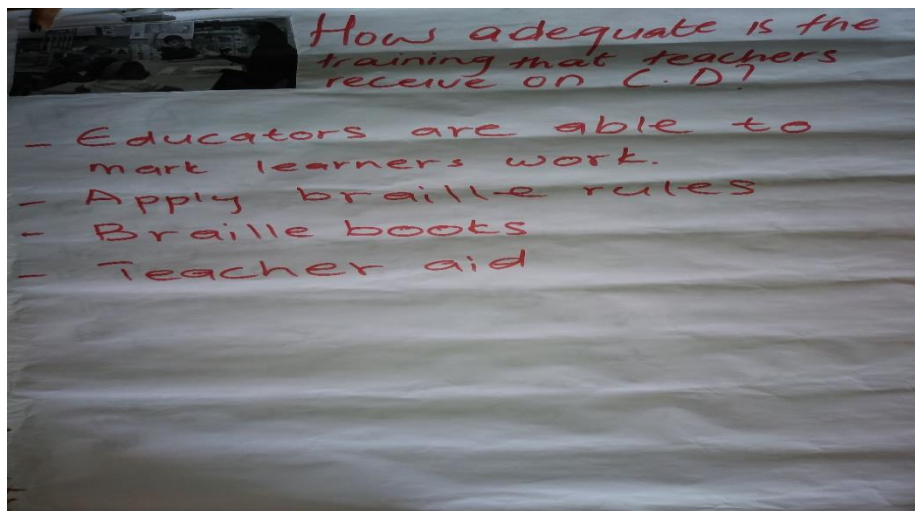 How adequate is the
training that teachers
receive on C.D?
- Educators are able to
mark learners work.
- Apply braille rules
- Braille books
- Teacher aid